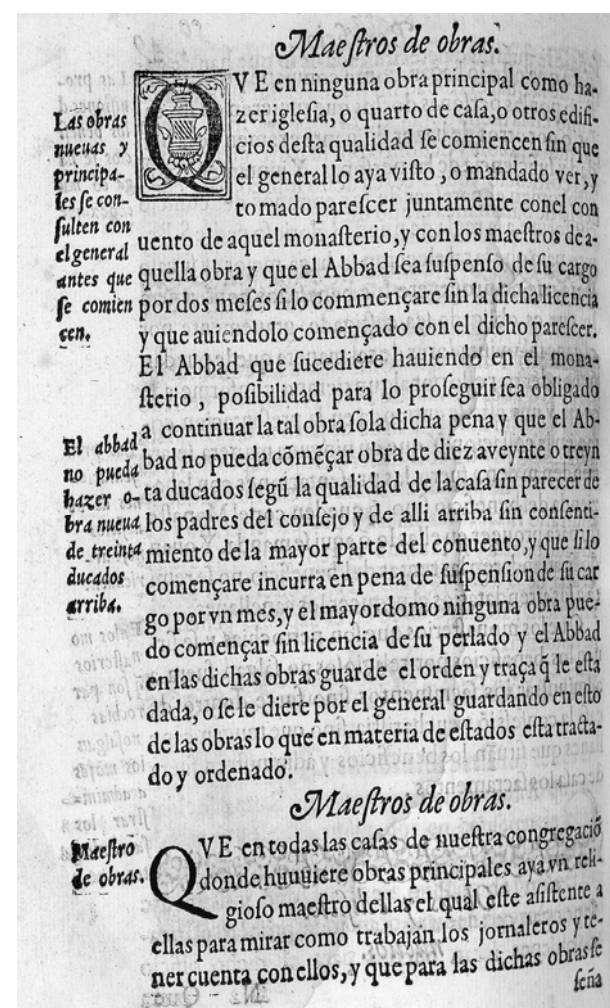 Maeſtros de obras.
QVE en ninguna obra principal como ha-
zer igleſia, o quarto de caſa, o otros edifi-
cios deſta qualidad ſe comiencen ſin que
el general lo aya viſto, o mandado ver, y
tomado pareſcer juntamente conel con
uento de aquel monaſterio, y con los maeſtros de a-
quella obra y que el Abbad ſea ſuſpenſo de ſu cargo
por dos meſes ſi lo commençare ſin la dicha licencia
y que auiendolo començado con el dicho pareſcer.
El Abbad que ſucediere hauiendo en el mona-
ſterio, poſibilidad para lo proſeguir ſea obligado
a continuar la tal obra ſola dicha pena y que el Ab-
bad no pueda cõmẽçar obra de diez a veynte o treyn
ta ducados ſegũ la qualidad de la caſa ſin parecer de
los padres del conſejo y de alli arriba ſin conſenti-
miento de la mayor parte del conuento, y que ſi lo
començare incurra en pena de ſuſpenſion de ſu car
go por vn mes, y el mayordomo ninguna obra pue-
do començar ſin licencia de ſu perlado y el Abbad
en las dichas obras guarde el orden y traça q̃ le eſta
dada, o ſe le diere por el general guardando en eſto
de las obras lo que en materia de eſtados eſta tracta-
do y ordenado.
Las obras
nueuas y
principa-
les ſe con-
ſulten con
el general
antes que
ſe comien
cen.
El abbad
no pueda
hazer o-
bra nueua
de treinta
ducados
arriba.
Maeſtros de obras.
QVE en todas las caſas de nueſtra congregació
donde huuiere obras principales aya vn reli-
gioſo maeſtro dellas el qual eſte aſiſtente a
ellas para mirar como trabajan los jornaleros y te-
ner cuenta con ellos, y que para las dichas obras ſe
ſeña
Maeſtro
de obras.